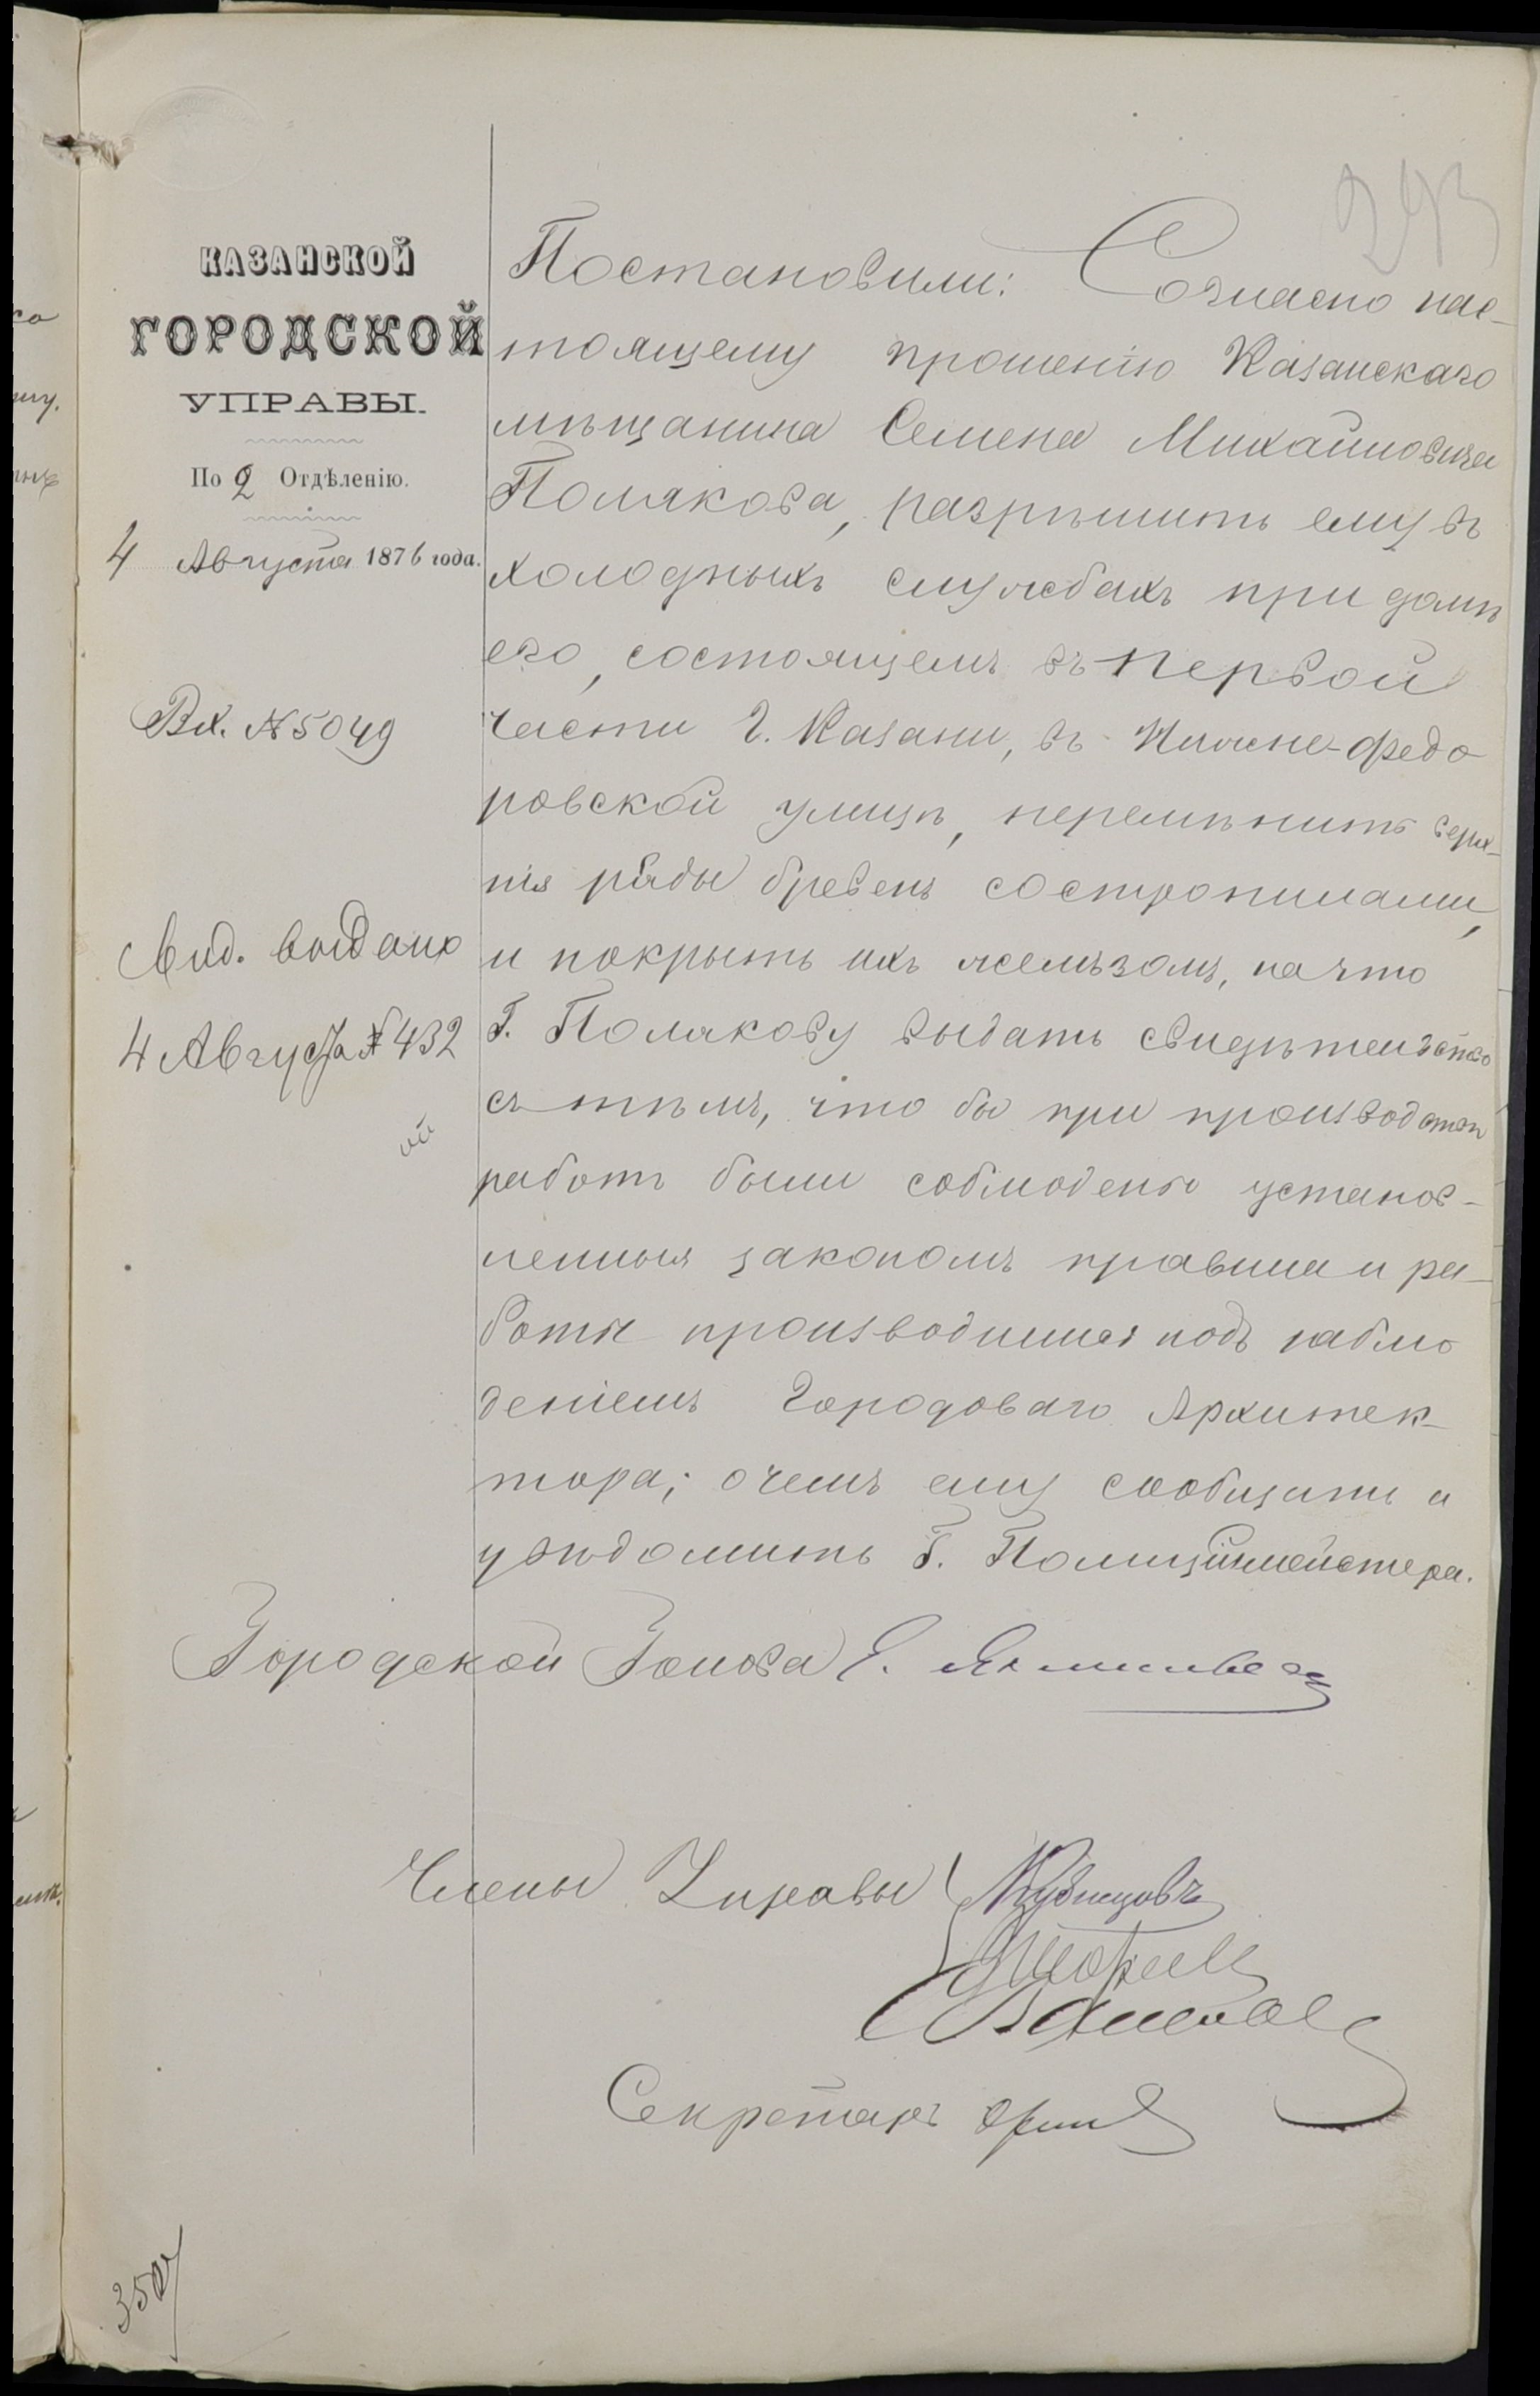 293
КАЗАНСКОЙ
ГОРОДСКОЙ
УПРАВЫ.
По 2 Отдѣленію.
4 Августа 1876 года.
Вх. №5049
Свид. выдано
4 Августа №432
Постановили: Согласно нас-
тоящему прошенію Казанскаго
мѣщанина Семена Михайловича
Полякова, разрѣшить ему въ
холодныхъ службахъ при домѣ
его, состоящемъ въ первой
части г. Казани, въ Нижне-Федо
ровской улицѣ, перемѣнить верх-
нія ряды бревенъ состропилами,
и покрыть ихъ желѣзомъ, на что
Г. Полякову выдать свидѣтельство
съ тѣмъ, что бы при производствѣ
работъ были соблюдены установ-
ленныя закономъ правила и ра-
боты производились подъ наблю
деніемъ Городоваго Архитек-
тора; очемъ ему сообщить и
увѣдомить Г. Полиціймейстера.
Городской Голова
Члены Управы Кубицовъ
Секретарь